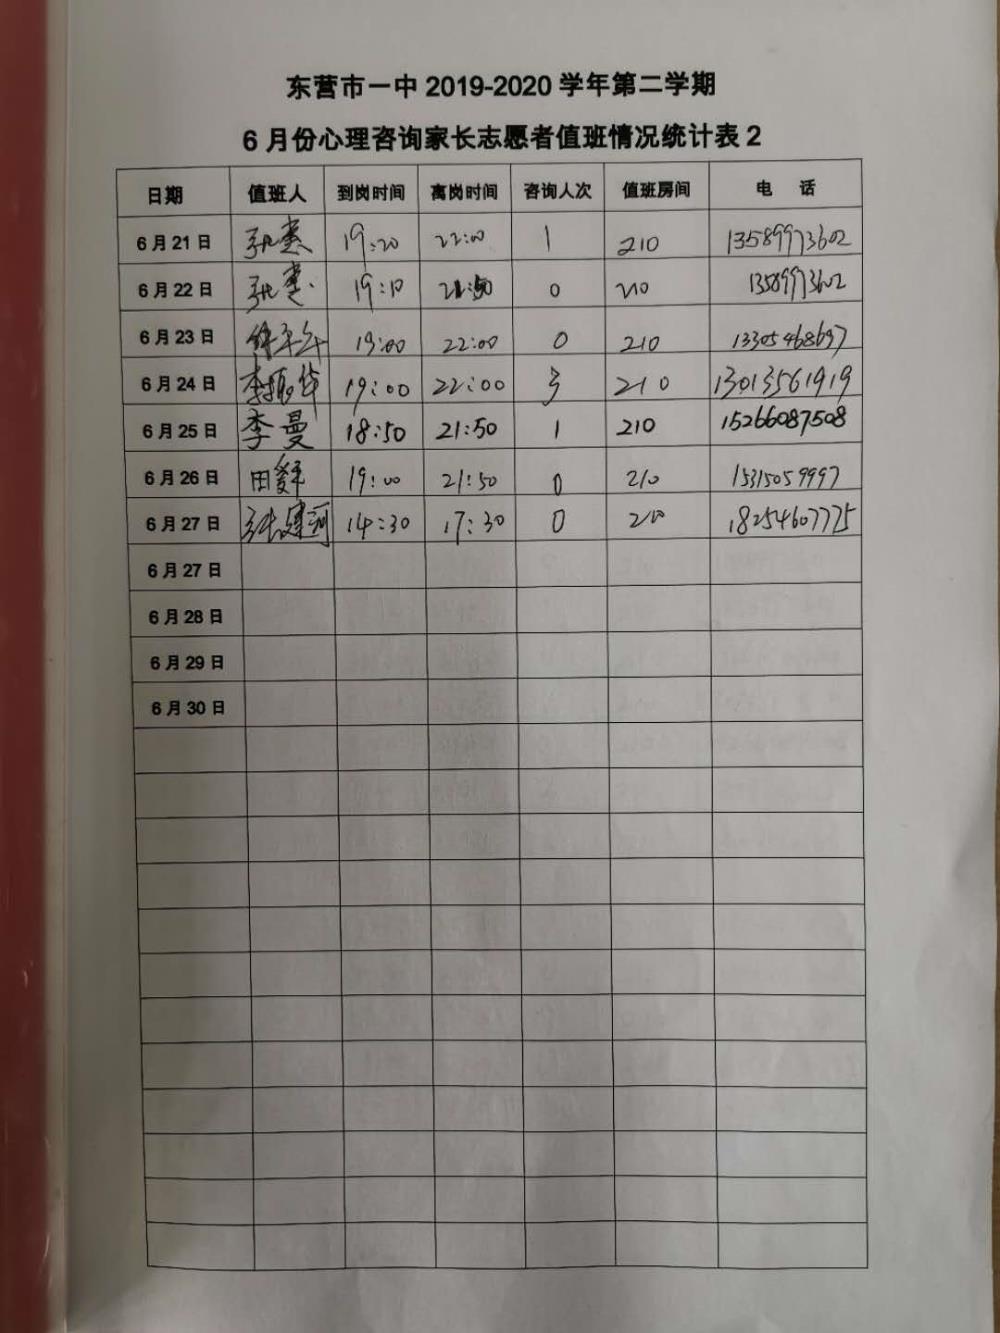 东营市一中 2019-2020 学年第二学期
6 月份心理咨询家长志愿者值班情况统计表 2
日期 值班人 到岗时间 离岗时间 咨询人次 值班房间 电 话
6 月 21 日 19:20 22:00 1 210 13589973602
6 月 22 日 19:10 0 210 13589973602
6 月 23 日 19:00 22:00 0 210 13305468697
6 月 24 日 李振华 19:00 22:00 3 210 13013561919
6 月 25 日 李曼 18:50 21:50 1 210 15266087508
6 月 26 日 田 19:00 21:50 0 210 15315059997
6 月 27 日 张建河 14:30 17:30 0 210 18254607775
6 月 27 日
6 月 28 日
6 月 29 日
6 月 30 日